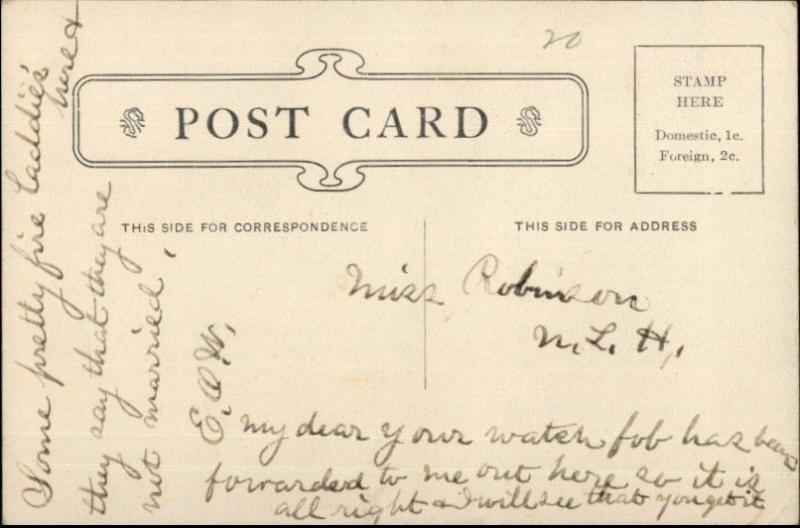 20
POST CARD
STAMP
HERE
Domestic, 1c.
Foreign, 2c.
THIS SIDE FOR CORRESPONDENCE
THIS SIDE FOR ADDRESS
Miss Robinson
N. L. H.,
my dear your watch fob has been
forwarded to me out here so it is
all right & I will see that you get it
Some pretty fine laddies here &
they say that they are
not married,
E. O. W.